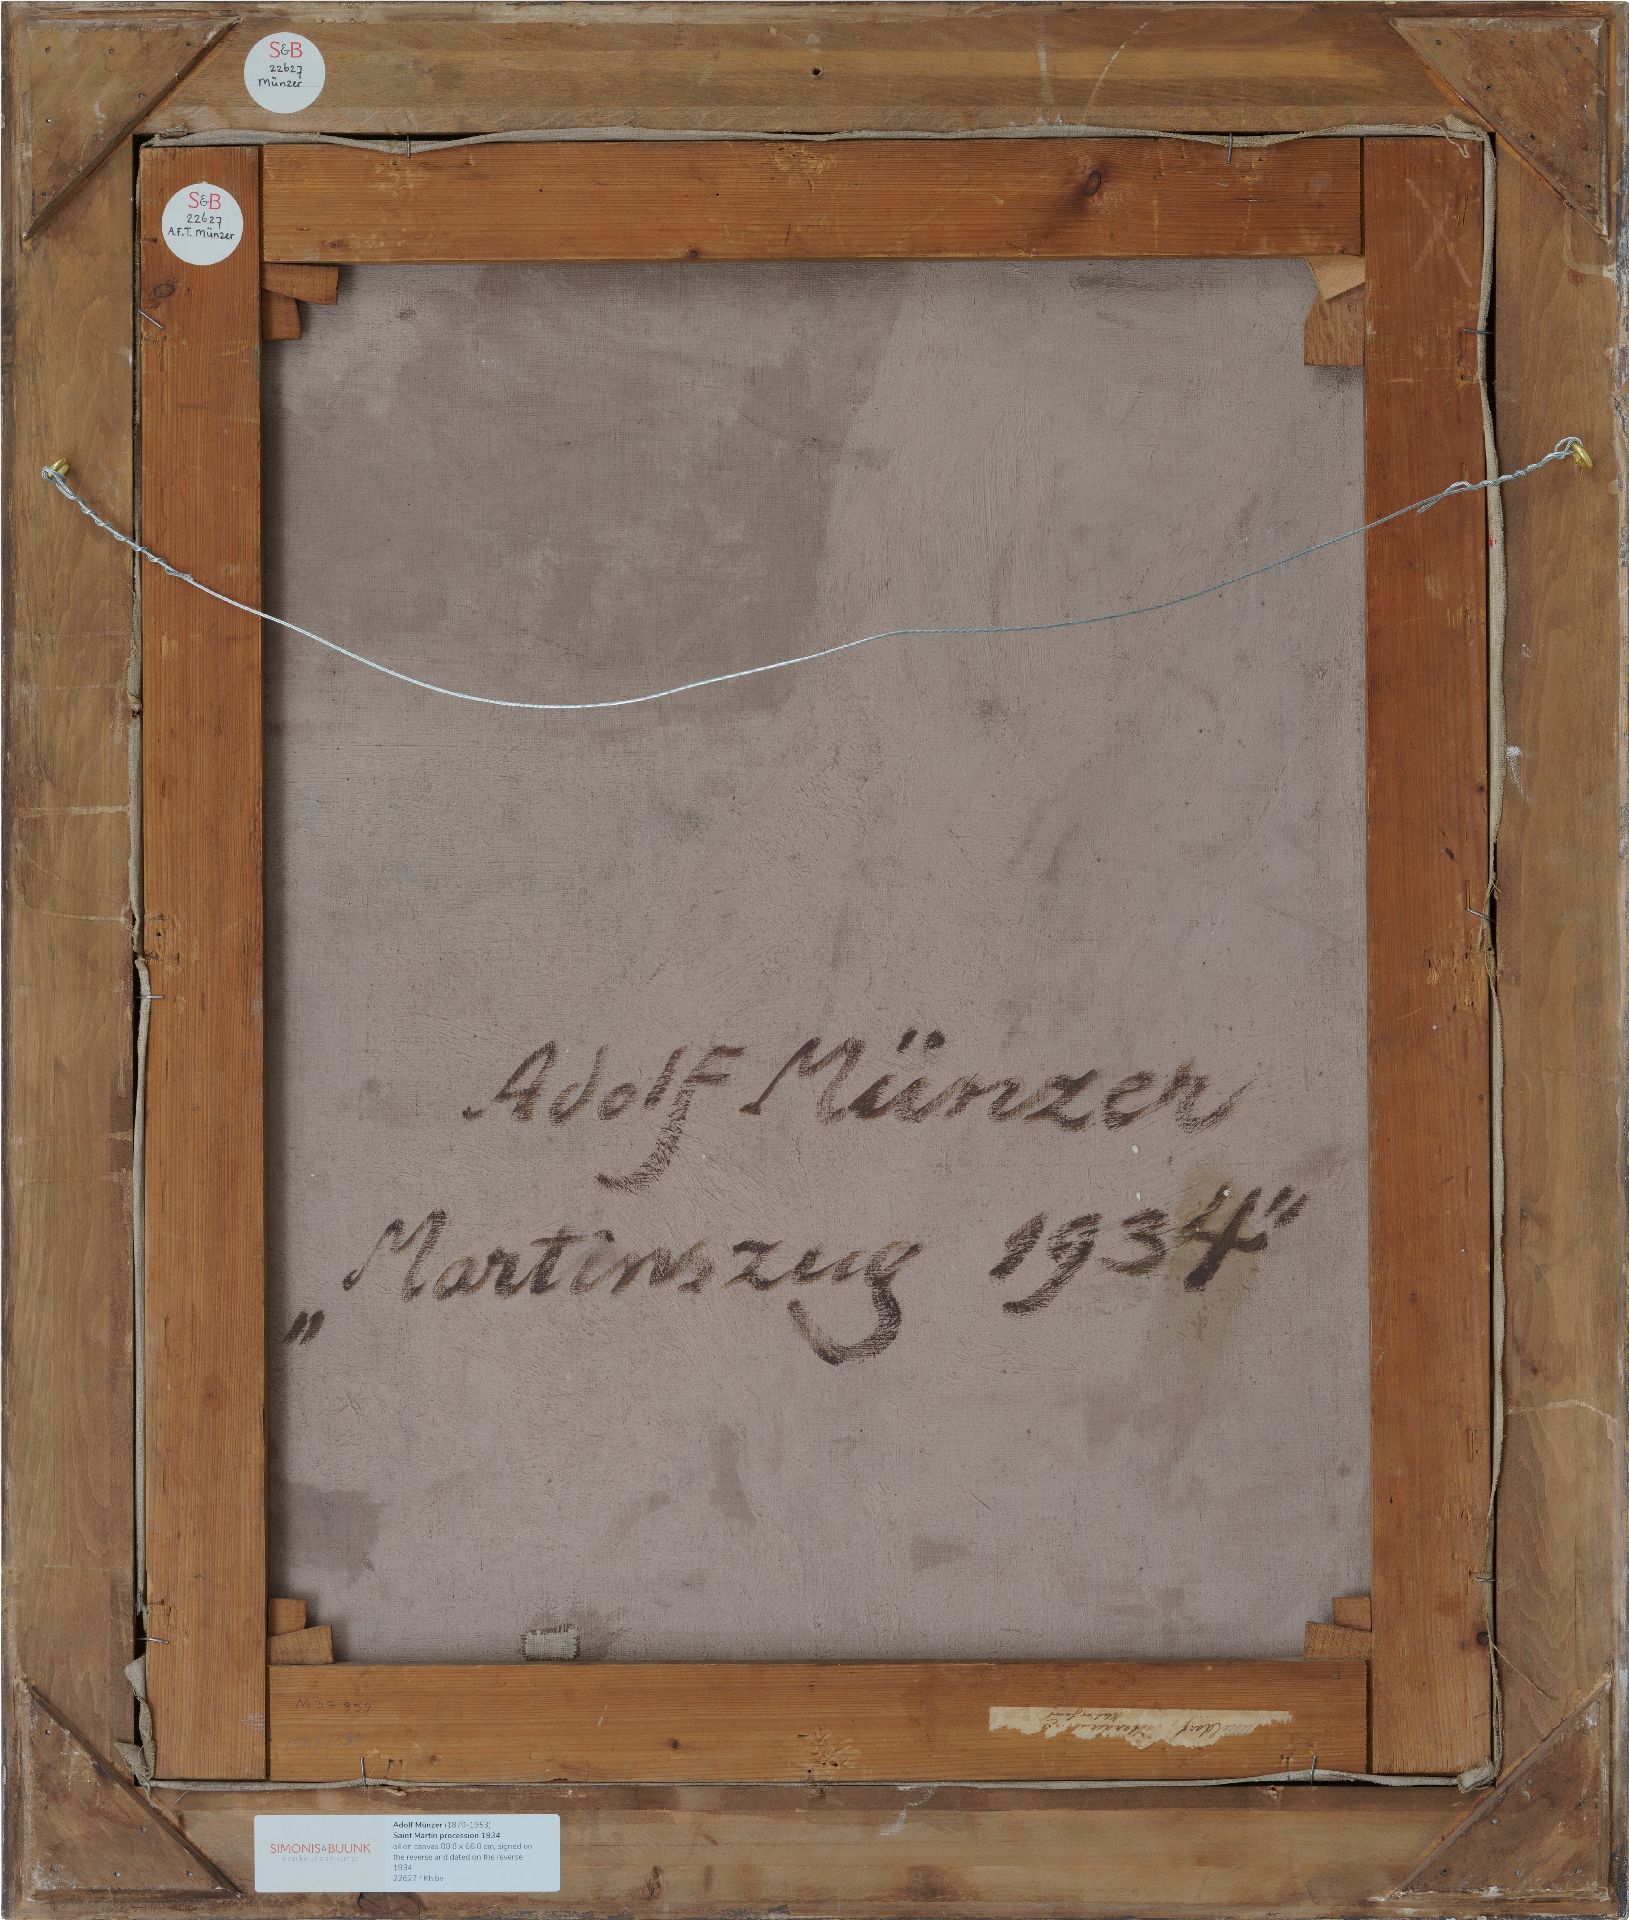 S&B
22627
Münzer
S&B
22627
A.F.T. Münzer
Adolf Münzer
„Martinszug 1934"
M 07 959
SIMONIS & BUUNK
een keur aan kunst
Adolf Münzer (1870-1953)
Saint Martin procession 1934
oil on canvas 80.8 x 66.0 cm, signed on
the reverse and dated on the reverse
1934
22627 / Kh.bv